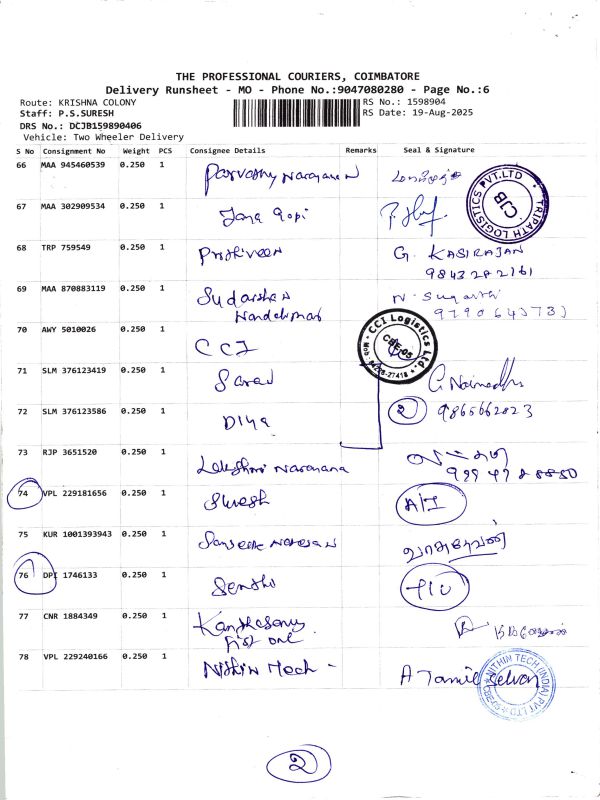 THE PROFESSIONAL COURIERS, COIMBATORE
Delivery Runsheet - MO - Phone No.:9047080280 - Page No.:6
Route: KRISHNA COLONY RS No.: 1598904
Staff: P.S.SURESH RS Date: 19-Aug-2025
DRS No.: DCJB159890406
Vehicle: Two Wheeler Delivery
S No Consignment No Weight PCS Consignee Details Remarks Seal & Signature
66 MAA 945460539 0.250 1 Parvathy Narayanan
TRIPATH LOGISTICS PVT.LTD CJB
67 MAA 302909534 0.250 1 Jana Gopi
68 TRP 759549 0.250 1 Prithiveen G. KASIRAJAN
9843282161
69 MAA 870883119 0.250 1 Sudarshan N. Suganthi
Nandakumar 9790643733
70 AWY 5010026 0.250 1 CCI
CCI Logistics Ltd CBE-05
71 SLM 376123419 0.250 1 Saran
72 SLM 376123586 0.250 1 Diya 2 9865662823
73 RJP 3651520 0.250 1 Lakshmi Narayana
74 VPL 229181656 0.250 1 Suresh A/I
75 KUR 1001393943 0.250 1 வாசுதேவன்
76 DPI 1746133 0.250 1
77 CNR 1884349 0.250 1 Kandhasamy
First one.
78 VPL 229240166 0.250 1 Nithin Tech - A Tamil Selvan
NITHIN TECH (INDIA) PVT LTD
2